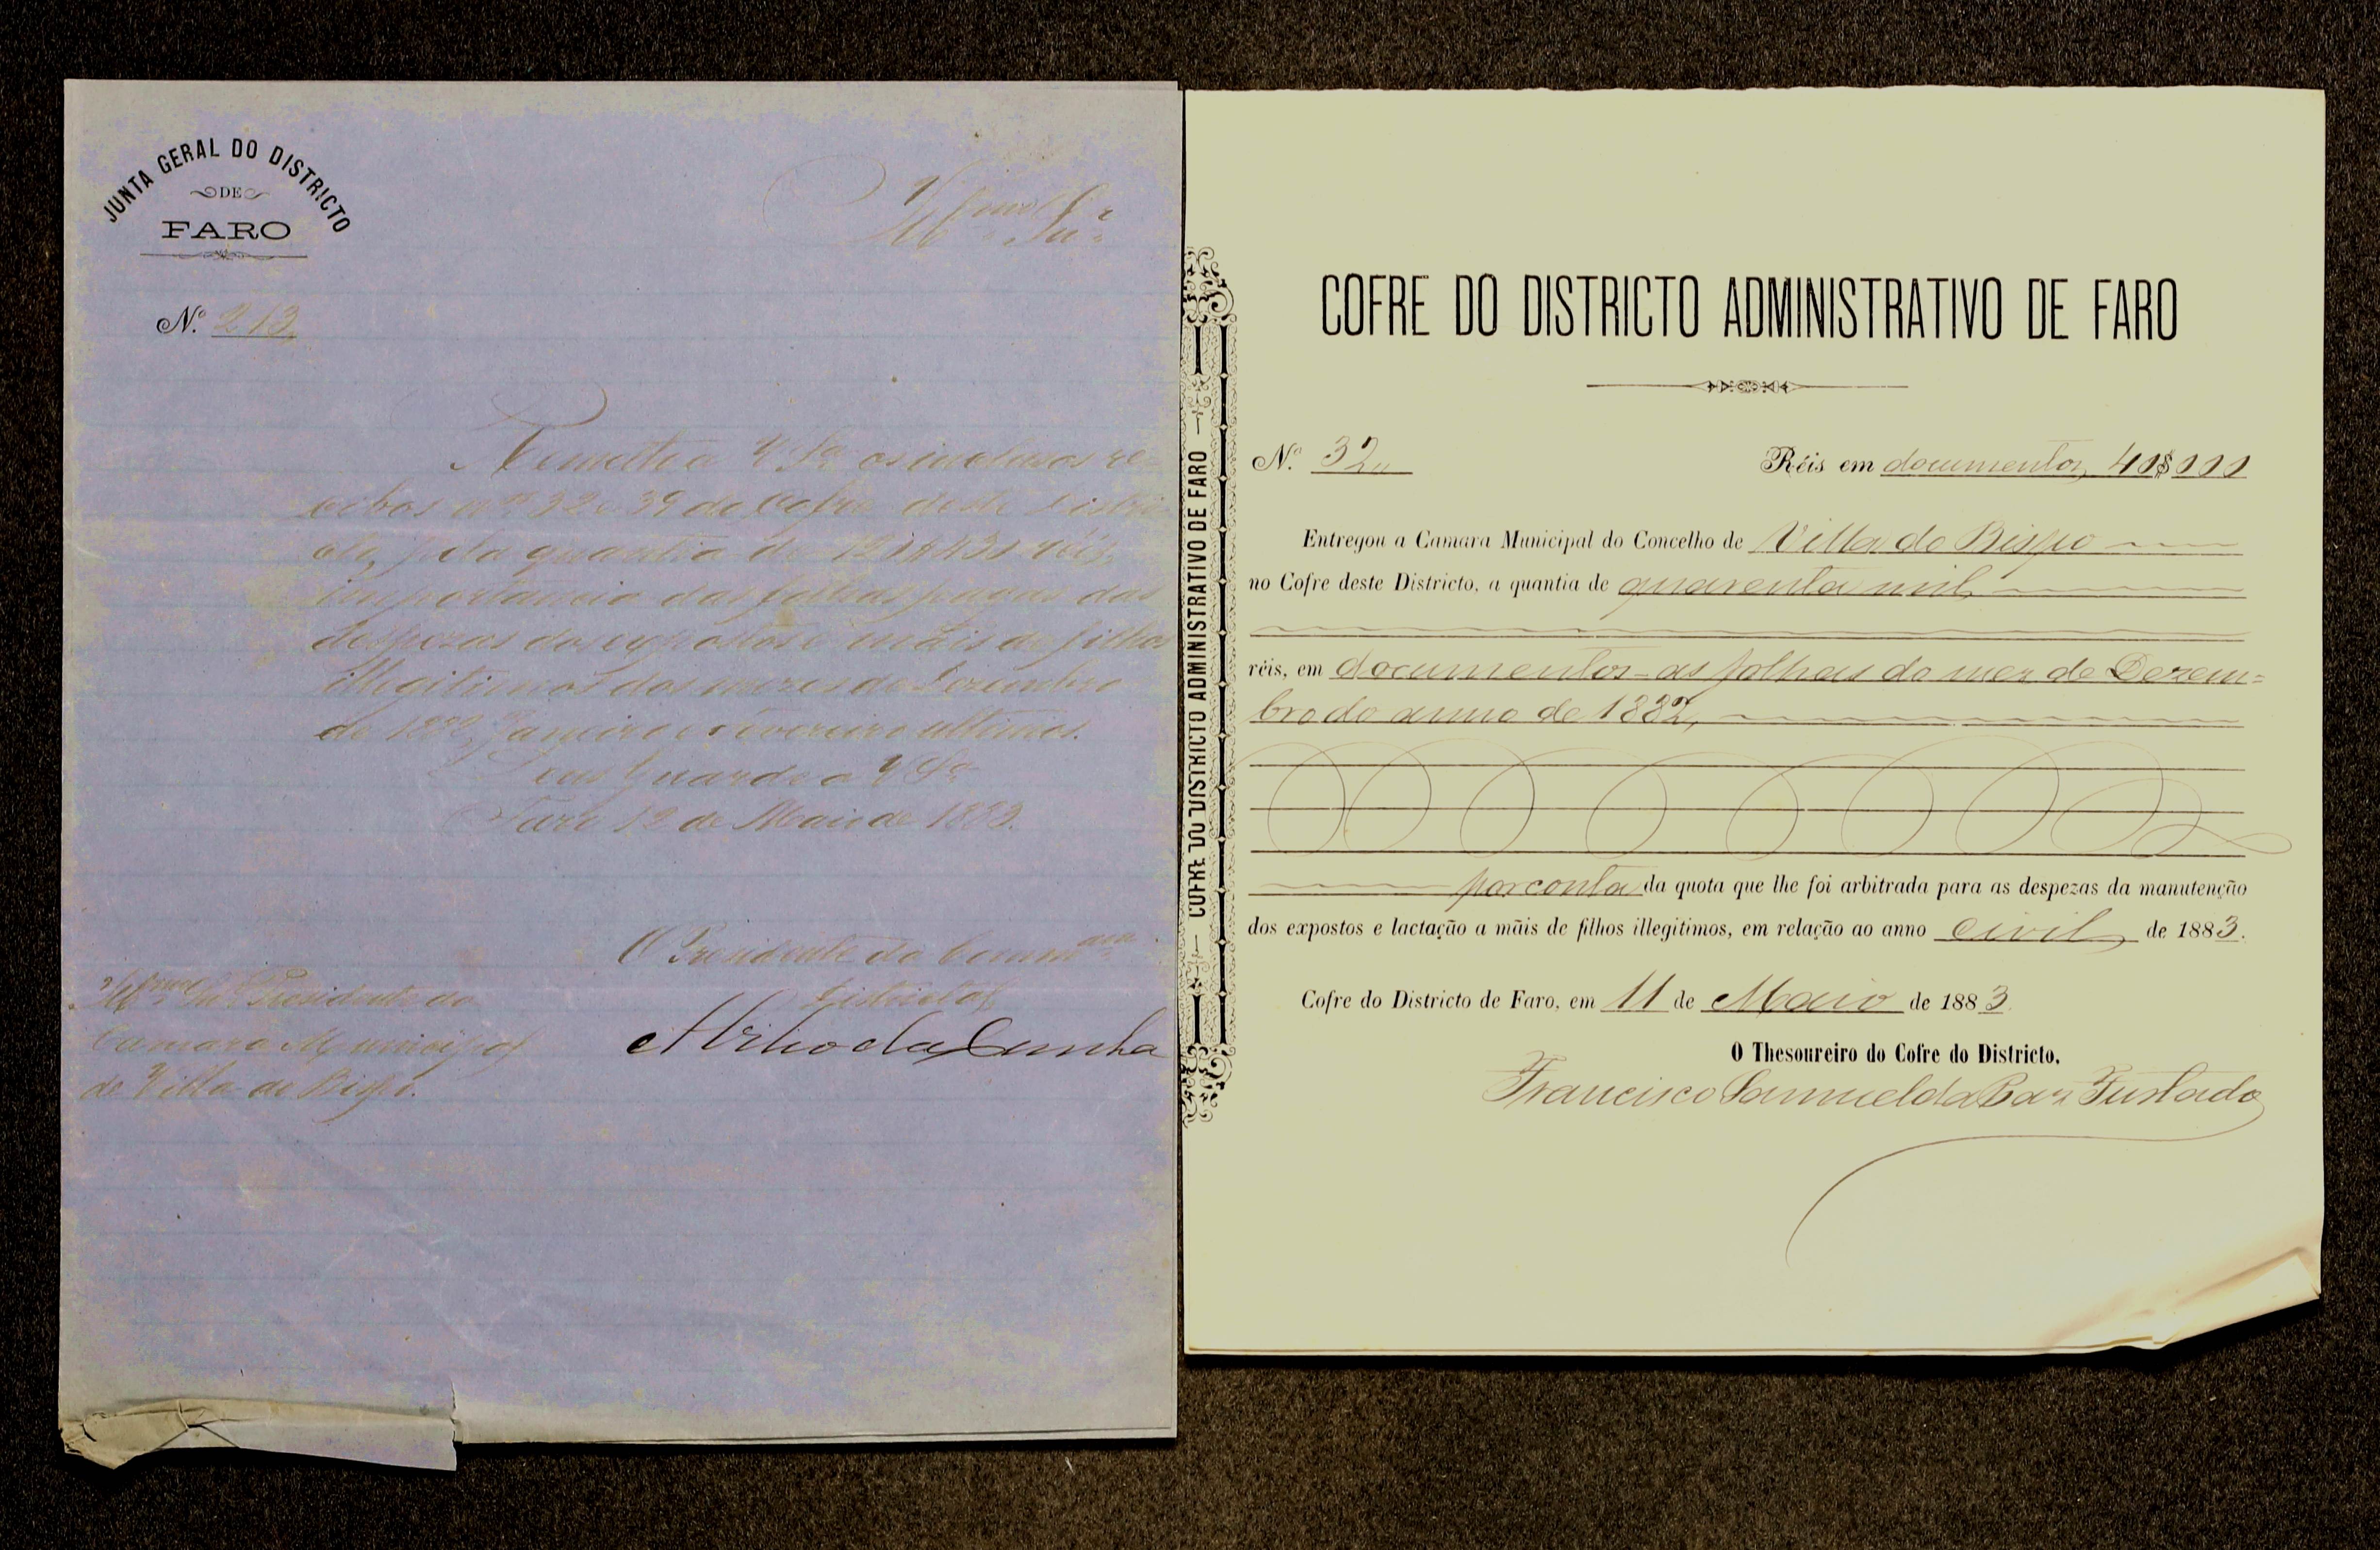 JUNTA GERAL DO DISTRICTO
DE
FARO
Illmo Snr
N.º 213
Remetto a V. Sª os inclusos re-
cibos nos 32 e 39 do Cofre deste Distri-
cto, pela quantia de réis,
importancia das folhas pagas das
despezas dos expostos e mãis de filhos
illegitimos dos mezes de Dezembro
de 1882, Janeiro e Fevereiro ultimos.
Deus Guarde a V. Sª
Faro 12 de Maio de 1883.
O Presidente da Commam
Districtal
Illmo Snr Presidente da
Camara Municipal
de Villa do Bispo.
da Cunha
COFRE DO DISTRICTO ADMINISTRATIVO DE FARO — COFRE DO DISTRICTO ADMINISTRATIVO DE FARO
COFRE DO DISTRICTO ADMINISTRATIVO DE FARO
N.º 32
Réis em documentos, 40$000
Entregou a Camara Municipal do Concelho de Villa do Bispo
no Cofre deste Districto, a quantia de quarenta mil
réis, em documentos - as folhas do mez de Dezem=
bro do anno de 1882,
por conta da quota que lhe foi arbitrada para as despezas da manutenção
dos expostos e lactação a mãis de filhos illegitimos, em relação ao anno civil de 1883.
Cofre do Districto de Faro, em 11 de Maio de 1883
O Thesoureiro do Cofre do Districto,
Francisco Samuel da Paz Furtado